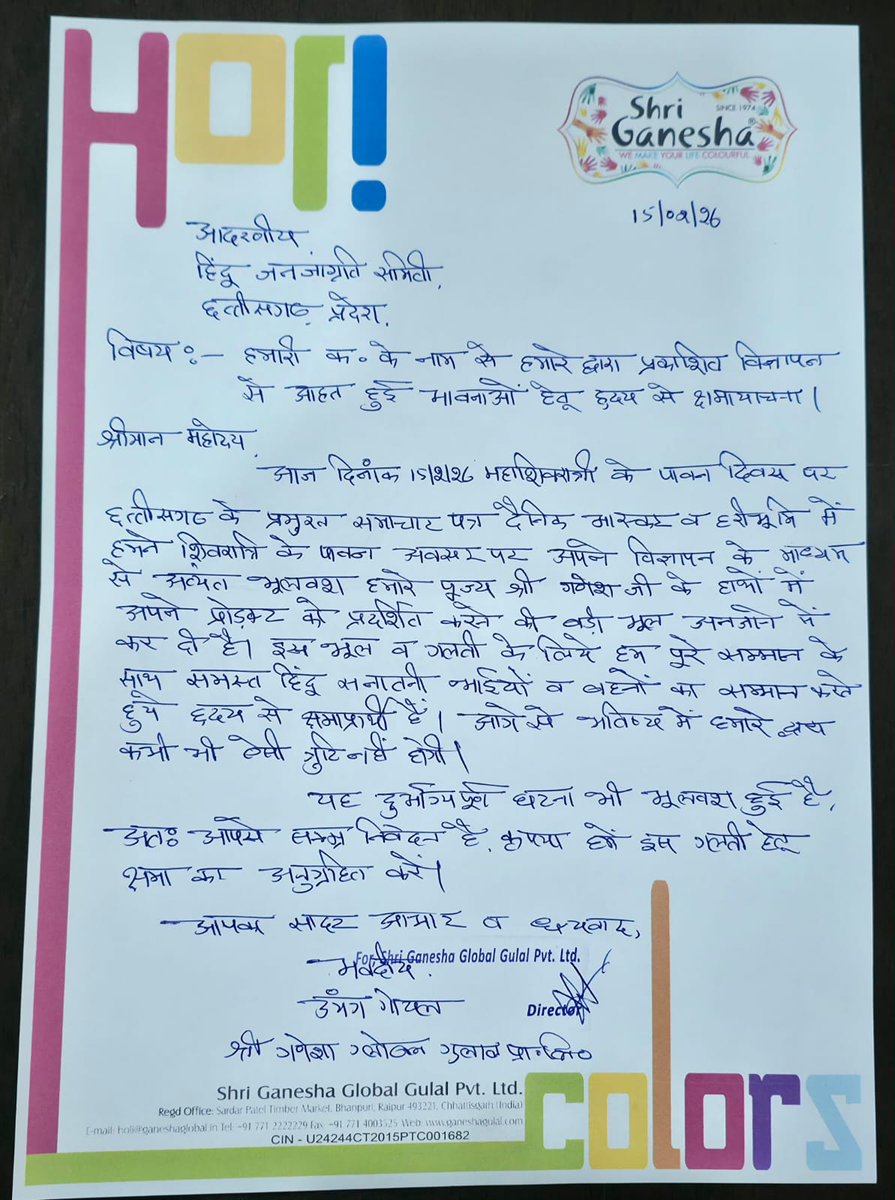 HOr!
Shri
Ganesha®
SINCE 1974
WE MAKE YOUR LIFE COLOURFUL
15/02/26
आदरणीय
हिंदू जनजागृति समिती,
छत्तीसगढ़ प्रदेश,
विषय :- हमारी क. के नाम से हमारे द्वारा प्रकाशित विज्ञापन
से आहत हुई भावनाओं हेतू हृदय से क्षमायाचना।
श्रीमान महोदय,
आज दिनांक 15/2/26 महाशिवरात्री के पावन दिवस पर
छत्तीसगढ के प्रमुख समाचार पत्र दैनिक भास्कर व हरीभूमि में
हमने शिवरात्रि के पावन अवसर पर अपने विज्ञापन के माध्यम
से अत्यंत भूलवश हमारे पूज्य श्री गणेश जी के हाथों में
अपने प्रोडक्ट को प्रदर्शित करने की बड़ी भूल अनजाने में
कर दी है। इस भूल व गलती के लिये हम पूरे सम्मान के
साथ समस्त हिंदू सनातनी भाईयों व बहनों का सम्मान करते
हुये हृदय से क्षमाप्रार्थी हैं। आगे से भविष्य में हमारे द्वारा
कभी भी ऐसी त्रुटि नहीं होगी।
यह दुर्भाग्यपूर्ण घटना भी भूलवश हुई है,
अतः आपसे नम्र निवेदन है, कृपया हमें इस गलती हेतू
क्षमा का अनुग्रहित करें।
आपका सादर आभार व धन्यवाद,
For Shri Ganesha Global Gulal Pvt. Ltd.
भवदीय
उमंग गोयल
Director
श्री गणेशा ग्लोबल गुलाल प्रा. लि०
Shri Ganesha Global Gulal Pvt. Ltd.
Regd Office: Sardar Patel Timber Market, Bhanpuri, Raipur 493221, Chhattisgarh (India)
E-mail: holi@ganeshaglobal.in Tel: +91 771 2222229 Fax: +91 771 4003525 Web: www.ganeshagulal.com
CIN - U24244CT2015PTC001682
colors